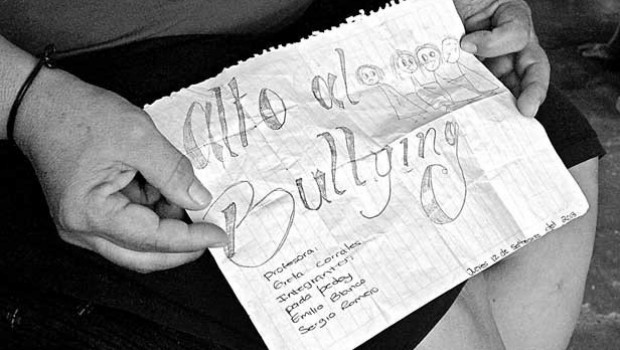 Alto al
Bullying
Profesora:
Greta Corrales
Integrantes:
pada pedoy
Emilio Blanco
Sergio Romero
Jueves 12 de Setiembre del 2013